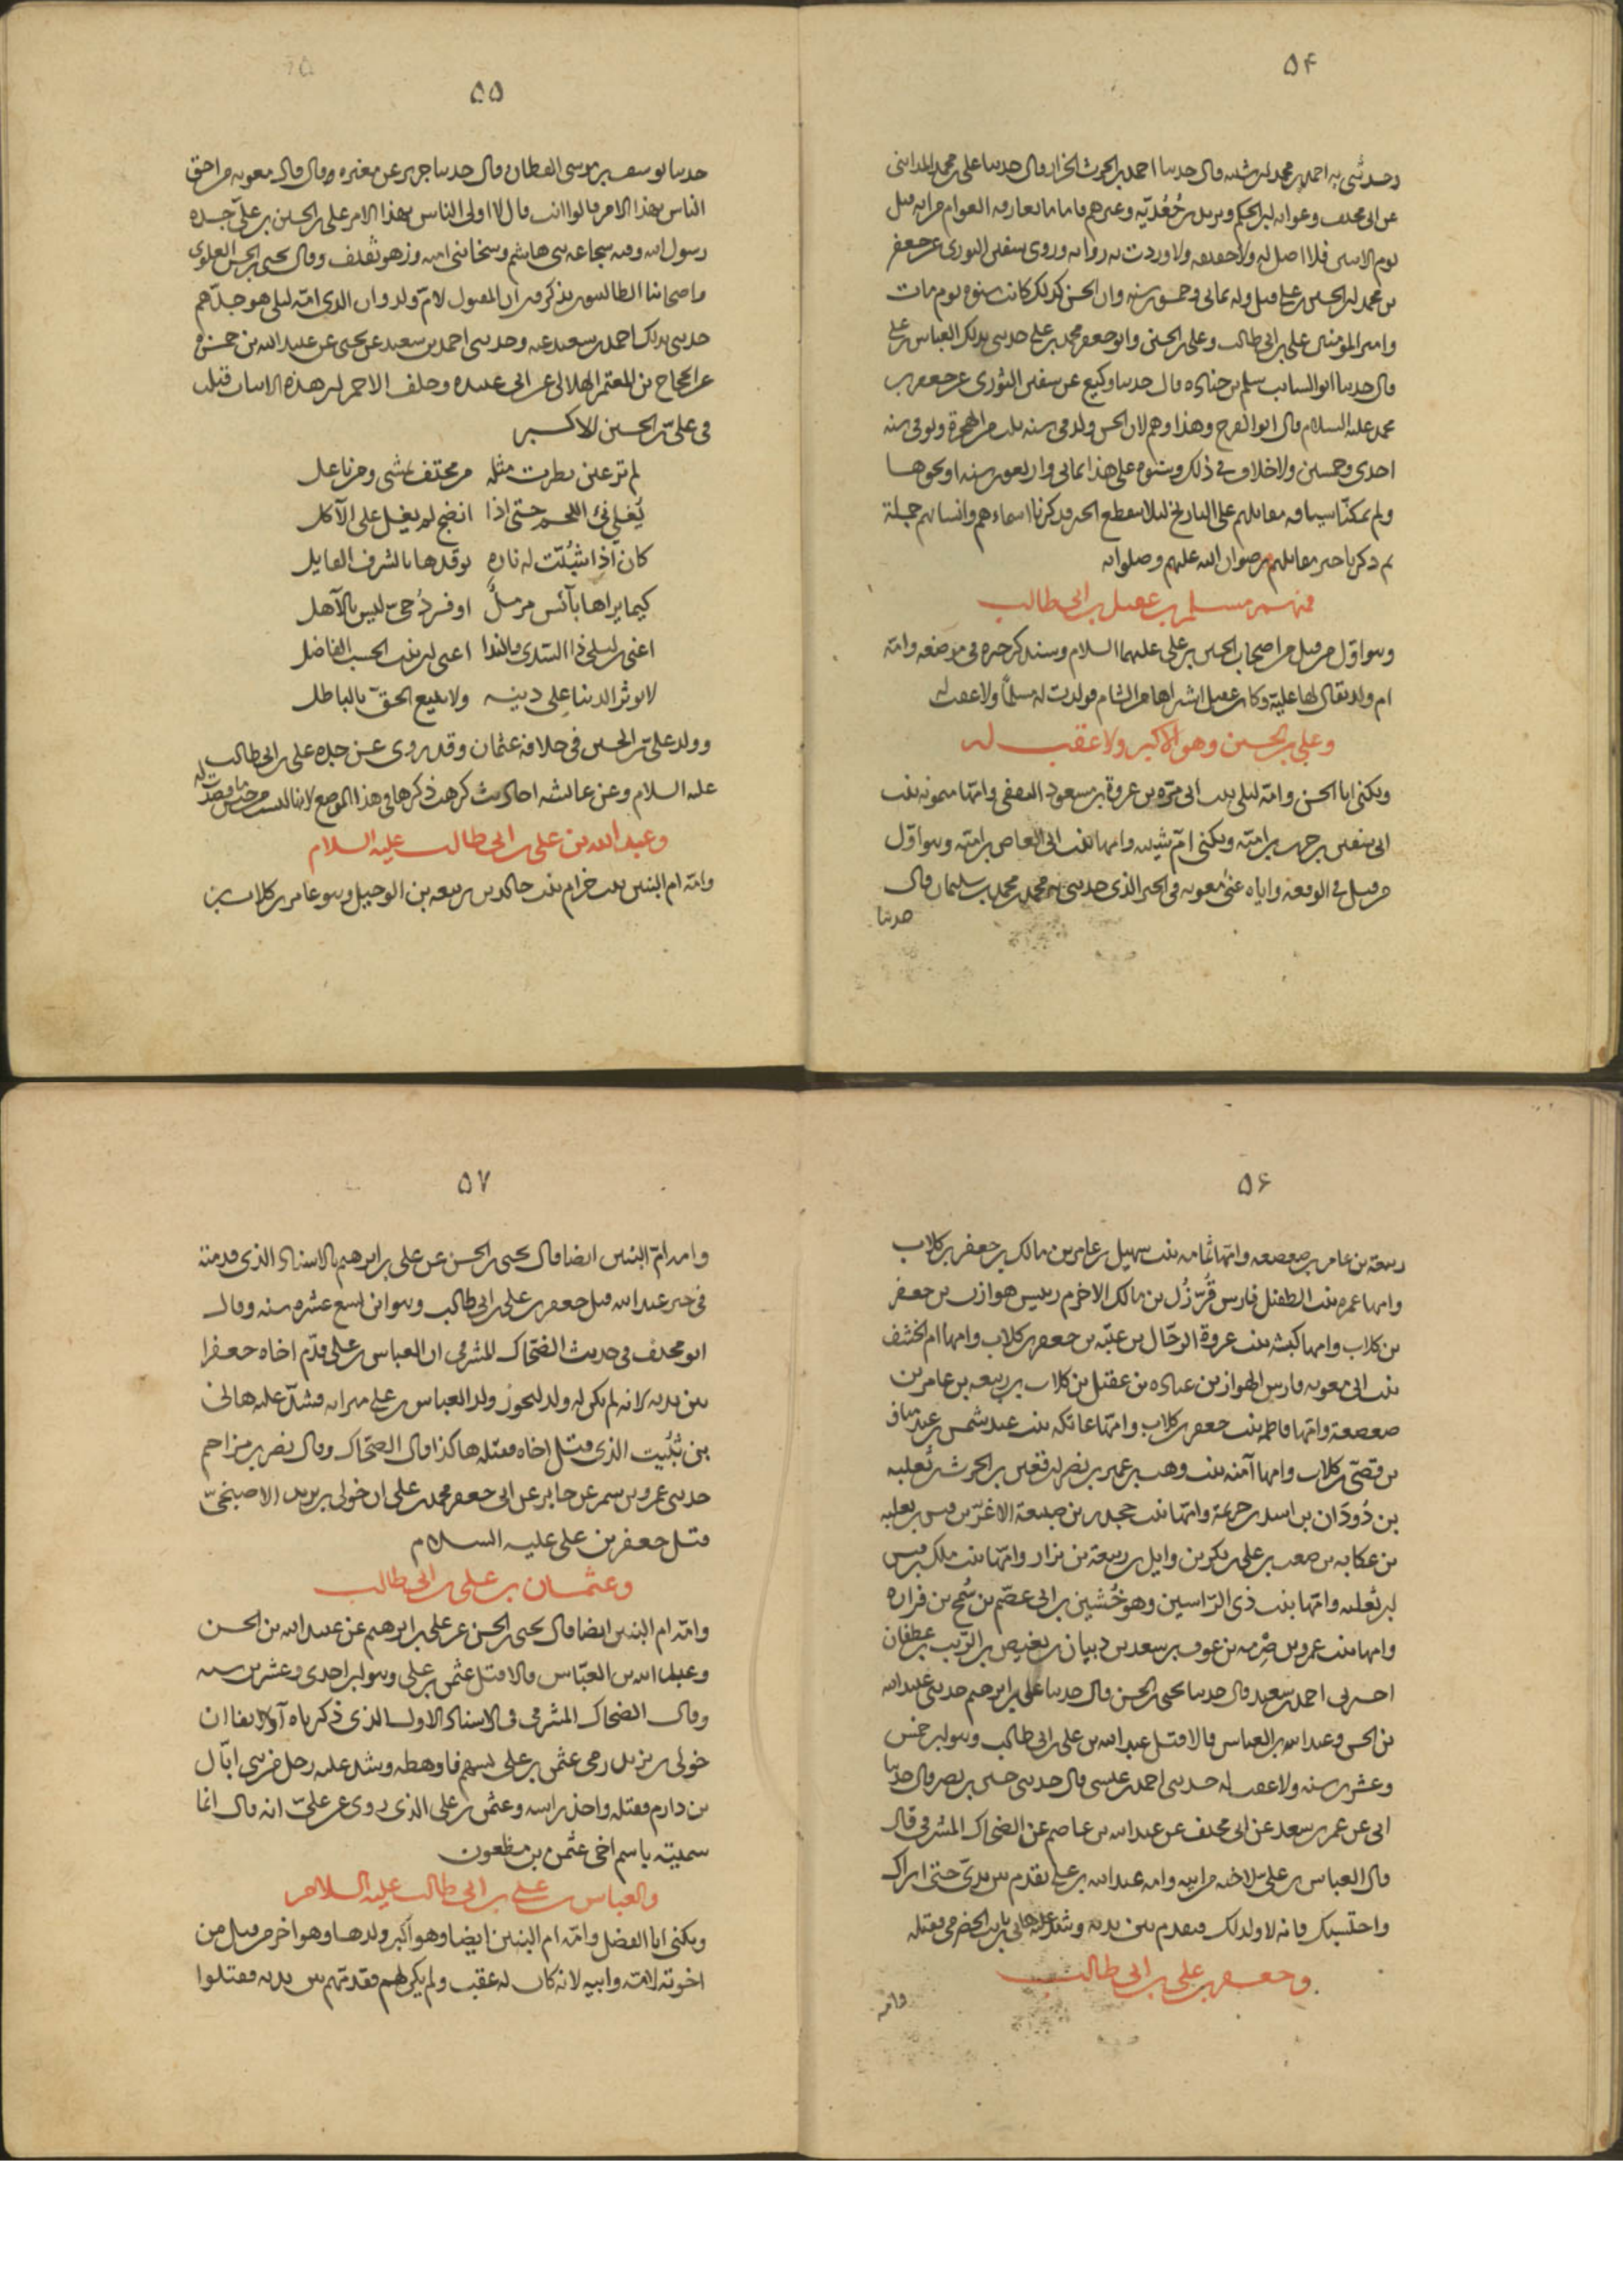 ۵۴
وحدثني به احمد بن محمد بن شيبه قال حدثنا احمد بن الحرث الخزاز قال حدثنا على بن محمد المدائنى
عن ابى مخنف وعوانه بن الحكم ويزيد بن جُعُدبّه وغيرهم فاما ما تعارفه العوام من انه قتل
يوم الاثنين فلا اصل له ولا حقيقه ولا وردت به روايه وروى سفين الثورى عن جعفر
بن محمد ان الحسين بن على قتل وله ثمانى وخمسون سنه وان الحسن كذلك كانت سنوه يوم مات
وامير المومنين على بن ابى طالب وعلى بن الحسين وابو جعفر محمد بن على حدثنى بذلك العباس بن على
قال حدثنا ابو السايب سلم بن جناده قال حدثنا وكيع عن سفين الثورى عن جعفر بن
محمد عليه السلام قال ابو الفرج وهذا وهم لان الحسن ولد فى سنه ثلث من الهجرة وتوفى سنه
احدى وخمسين ولا خلاف فى ذلك وسنوه على هذا ثمانى واربعون سنه او نحوها
ولم يمكنا سياقه مقاتلهم على التاريخ ليلا ينقطع الخبر فذكرنا اسماءهم وانسابهم جملة
ثم ذكرنا خبر مقاتلهم رضوان الله عليهم وصلواته
فمنهم مسلم بن عقيل بن ابى طالب
وهو اوّل من قتل من اصحاب الحسين بن على عليهما السلام وسنذكر خبره فى موضعه وامّه
ام ولد يقال لها عليّة وكان عقيل اشتراها من الشام فولدت له مسلمًا ولا عقب له
وعلى بن الحسين وهو الاكبر ولا عقب له
ويكنى ابا الحسن وامّه ليلى بنت ابى مرّه بن عروة بن مسعود الثقفى وامّها ميمونه بنت
ابى سفين بن حرب بن اميّه ويكنى امّ شيبه وامها بنت ابى العاص بن اميّه وهو اوّل
من قتل فى الوقعه واياه عنى معويه فى الخبر الذى حدثنى به محمد بن محمد بن سليمان قال
حدثنا
۵۵
حدثنا يوسف بن موسى القطان قال حدثنا جرير عن مغيره قال قال معويه من احق
الناس بهذا الامر قالوا انت قال لا اولى الناس بهذا الامر على بن الحسين بن علىّ جده
رسول الله وفيه شجاعه بنى هاشم وسخا بنى اميه وزهو ثقيف وقال يحيى بن الحسن العلوى
واصحابنا الطالبيون يذكرون ان المقتول لامّ ولد وان الذى امّه ليلى هو جدّهم
حدثنى بذلك احمد بن سعيد عنه وحدثنى احمد بن سعيد عن يحيى عن عبيد الله بن حمزه
عن الحجاج بن المعتمر الهلالى عن ابى عبيده وخلف الاحمر ان هذه الابيات قيلت
فى علىّ بن الحسين الاكبر
لم تر عين نظرت مثله من محتف يمشى ومن ناعل
يُغلى نئ اللحم حتى اذا انضج لم يغل على الآكل
كان اذا شبّت له ناره يوقدها بالشرف القابل
كيما يراها بآئس مرملٌ او فرد حىّ ليس بالآهل
اعنى بن ليلى ذا السدى والندا اعنى ابن بنت الحسب الفاضل
لا يوثر الدنيا على دينه ولا يبيع الحقّ بالباطل
وولد علىّ بن الحسين فى خلافه عثمان وقد روى عن جده على بن ابى طالب
عليه السلام وعن عائشه احاديث كرهت ذكرها فى هذا الموضع لانها ليست من جنس ما قصدت له
وعبد الله بن على بن ابى طالب عليه السلام
وامّه ام البنين بنت حزام بنت خالد بن ربيعه بن الوحيل وهو عامر بن كلاب بن
۵۶
ربيعة بن عامر بن صعصعه وامّها ثمامه بنت سهيل بن عامر بن مالك بن جعفر بن كلاب
وامها عمره بنت الطفيل فارس قُرزُل بن مالك الاخرم رييس هوازن بن جعفر
بن كلاب وامها كبشه بنت عروة الرحّال بن عتبه بن جعفر بن كلاب وامها ام الخشف
بنت ابى معويه فارس الهوازن بن عباده بن عقيل بن كلاب بن ربيعه بن عامر بن
صعصعة وامّها فاطمه بنت جعفر بن كلاب وامّها عاتكه بنت عبد شمس بن عبد مناف
بن قصىّ بن كلاب وامها آمنه بنت وهب بن عمير بن نصر بن قعين بن الحرث بن ثعلبه
بن دُودَان بن اسد بن خزيمة وامّها بنت جحدر بن ضبيعة الاغرّ بن قيس بن ثعلبه
بن عكابه بن صعب بن على بن بكر بن وايل بن ربيعة بن نزار وامّها بنت ملك بن قيس
ابن ثعلبه وامّها بنت ذى الرّاسين وهو خُشين بن ابى عصم بن سُمح بن فزاره
وامها بنت عمرو بن صِرمه بن عوف بن سعد بن ذبيان بن بغيض بن الريث بن غطفان
اخبرنى احمد بن سعيد قال حدثنا يحيى بن الحسن قال حدثنا على بن ابرهيم حدثنى عبيد الله
بن الحسن وعبد الله بن العباس قالا قتل عبد الله بن على بن ابى طالب وهو ابن خمس
وعشرين سنه ولا عقب له حدثنى احمد بن عيسى قال حدثنى حسين بن نصر قال حدثنا
ابى عن عمر بن سعد عن ابى مخنف عن عبد الله بن عاصم عن الضحاك المشرقى قال
قال العباس بن على لاخيه من ابيه وامه عبد الله بن على تقدم بين يدىّ حتى اراك
واحتسبك فانه لا ولد لك فتقدم بين يديه وشدّ عليه هانى بن ثبيت الحضرمى فقتله
وجعفر بن على بن ابى طالب
وامه
۵۷
وامه امّ البنين ايضا قال يحيى بن الحسن عن على بن ابرهيم بالاسناد الذى قدمته
فى خبر عبد الله قتل جعفر بن على بن ابى طالب وهو ابن تسع عشره سنه وقال
ابو مخنف فى حديث الضحّاك المشرقى ان العباس بن على قدّم اخاه جعفرا
بين يديه لانه لم يكن له ولد ليحوز ولد العباس بن على ميراثه فشدّ عليه هانى
بن ثُبيت الذى قتل اخاه فقتله هاكذا قال الضحّاك وقال نصر بن مزاحم
حدثنى عمرو بن شمر عن جابر عن ابى جعفر محمد بن على ان خولى بن يزيد الاصبحىّ
قتل جعفر بن على عليه السلام
وعثمان بن على بن ابى طالب
وامّه ام البنين ايضا قال يحيى بن الحسن عن على بن ابرهيم عن عبيد الله بن الحسن
وعبد الله بن العبّاس قالا قتل عثمن بن على وهو ابن احدى وعشرين سنه
وقال الضحاك المشرقى فى الاسناد الاول الذى ذكرناه آنفا ان
خولى بن يزيد رمى عثمن بن على بسهم فاوهطه وشد عليه رجل من بنى ابّان
بن دارم فقتله واخذ راسه وعثمن بن على الذى روى عن علىّ انه قال انما
سميته باسم اخى عثمن بن مظعون
والعباس بن على بن ابى طالب عليه السلام
ويكنى ابا الفضل وامّه ام البنين ايضا وهو اكبر ولدها وهو اخر من قتل من
اخوته لامّه وابيه لانه كان له عقب ولم يكن لهم فقدمهم بين يديه فقتلوا